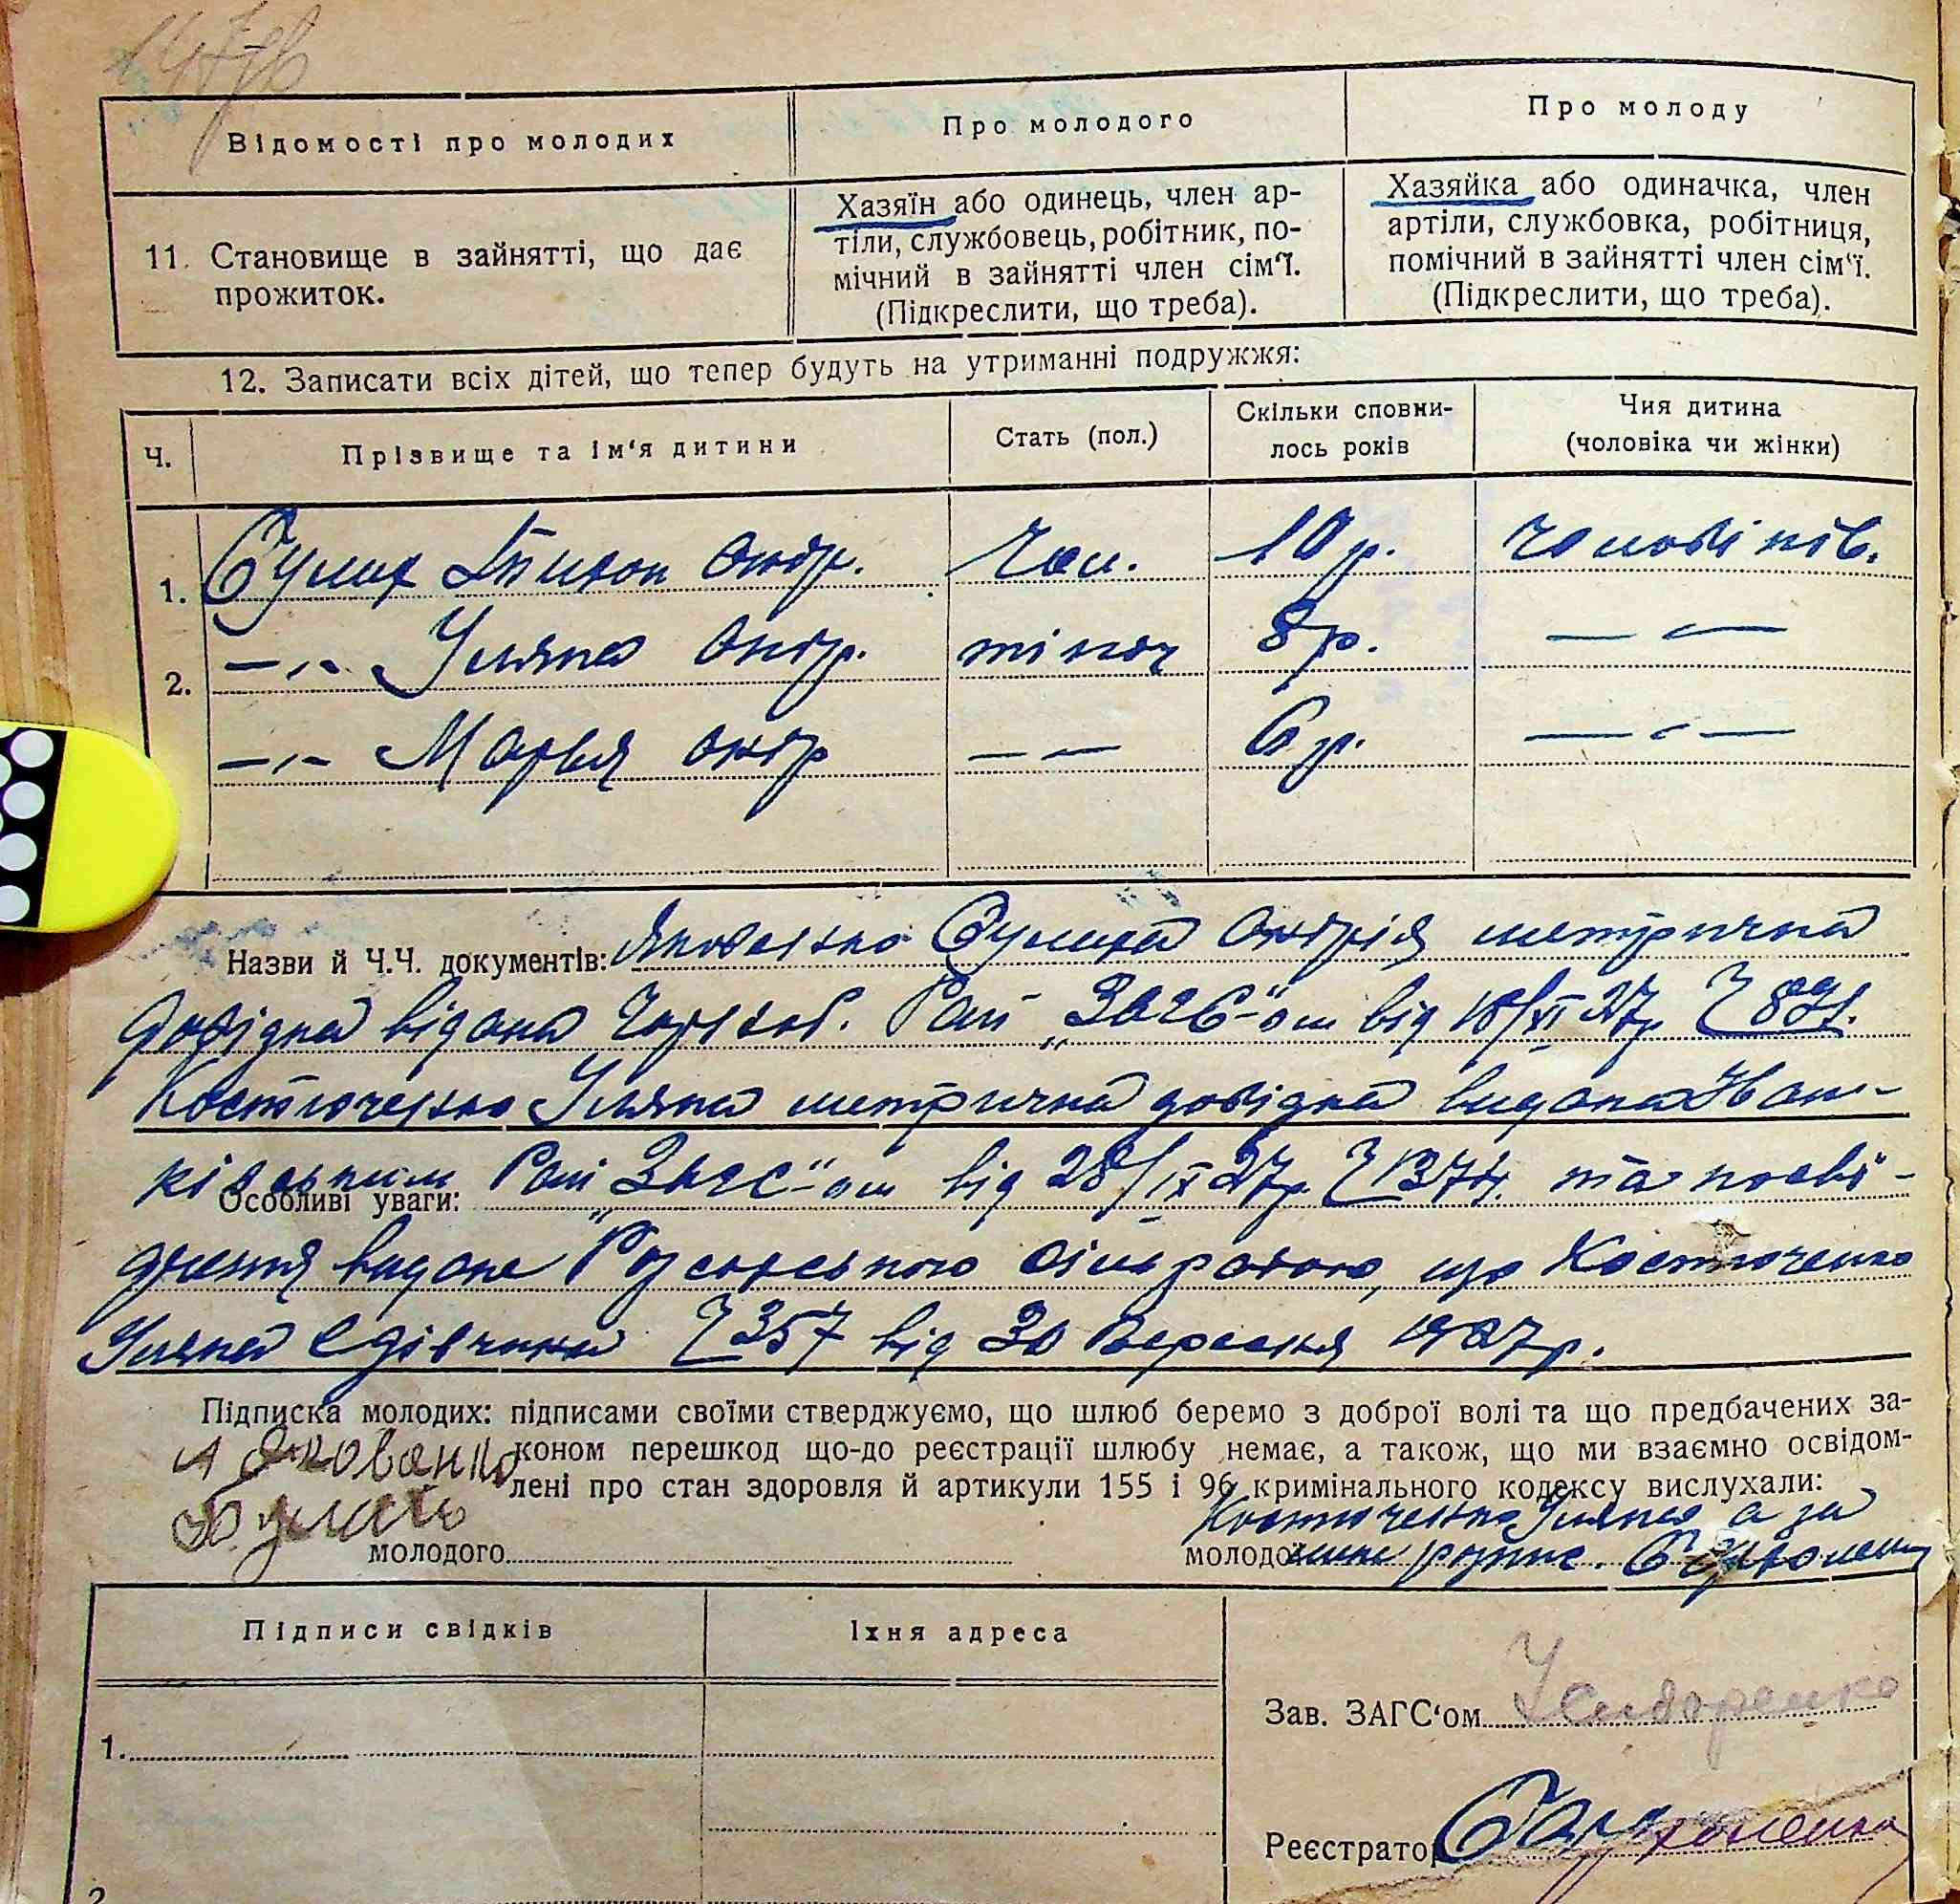 Відомості про молодих
Про молодого
Про молоду
11. Становище в зайнятті, що дає
прожиток.
Хазяїн або одинець, член ар-
тіли, службовець, робітник, по-
мічний в зайнятті член сім'ї.
(Підкреслити, що треба).
Хазяйка або одиначка, член
артіли, службовка, робітниця,
помічний в зайнятті член сім'ї.
(Підкреслити, що треба).
12. Записати всіх дітей, що тепер будуть на утриманні подружжя:
Ч.
Прізвище та ім'я дитини
Стать (пол.)
Скільки сповни-
лось років
Чия дитина
(чоловіка чи жінки)
1. Андр. Чол. 10 р. чоловіків.
2. —"— Уляна Андр. жіноч 8 р. — " —
—"— Марья Андр — — 6 р. — " —
Назви й Ч.Ч. документів: Яковенко Андрія метрична
довідка видана Рай „ЗАГС"-ом від 18/XI 27р. Ч
Костюченко Уляна метрична довідка видана Іван-
ківським Рай ЗАГС"-ом від 28/IX 27р. Ч 1374. та посві-
Особливі уваги:
дчення видане сільрадою, що Костюченко
Уляна є дівчина Ч 357 від 30 Вересня 1927р.
Підписка молодих: підписами своїми стверджуємо, що шлюб беремо з доброї волі та що предбачених за-
коном перешкод що-до реєстрації шлюбу немає, а також, що ми взаємно освідом-
лені про стан здоровля й артикули 155 і 96 кримінального кодексу вислухали:
А Яковенко
Костюченко Уляна а за
молодого
молодої
Підписи свідків
Їхня адреса
Зав. ЗАГС'ом
1.
Реєстратор
2